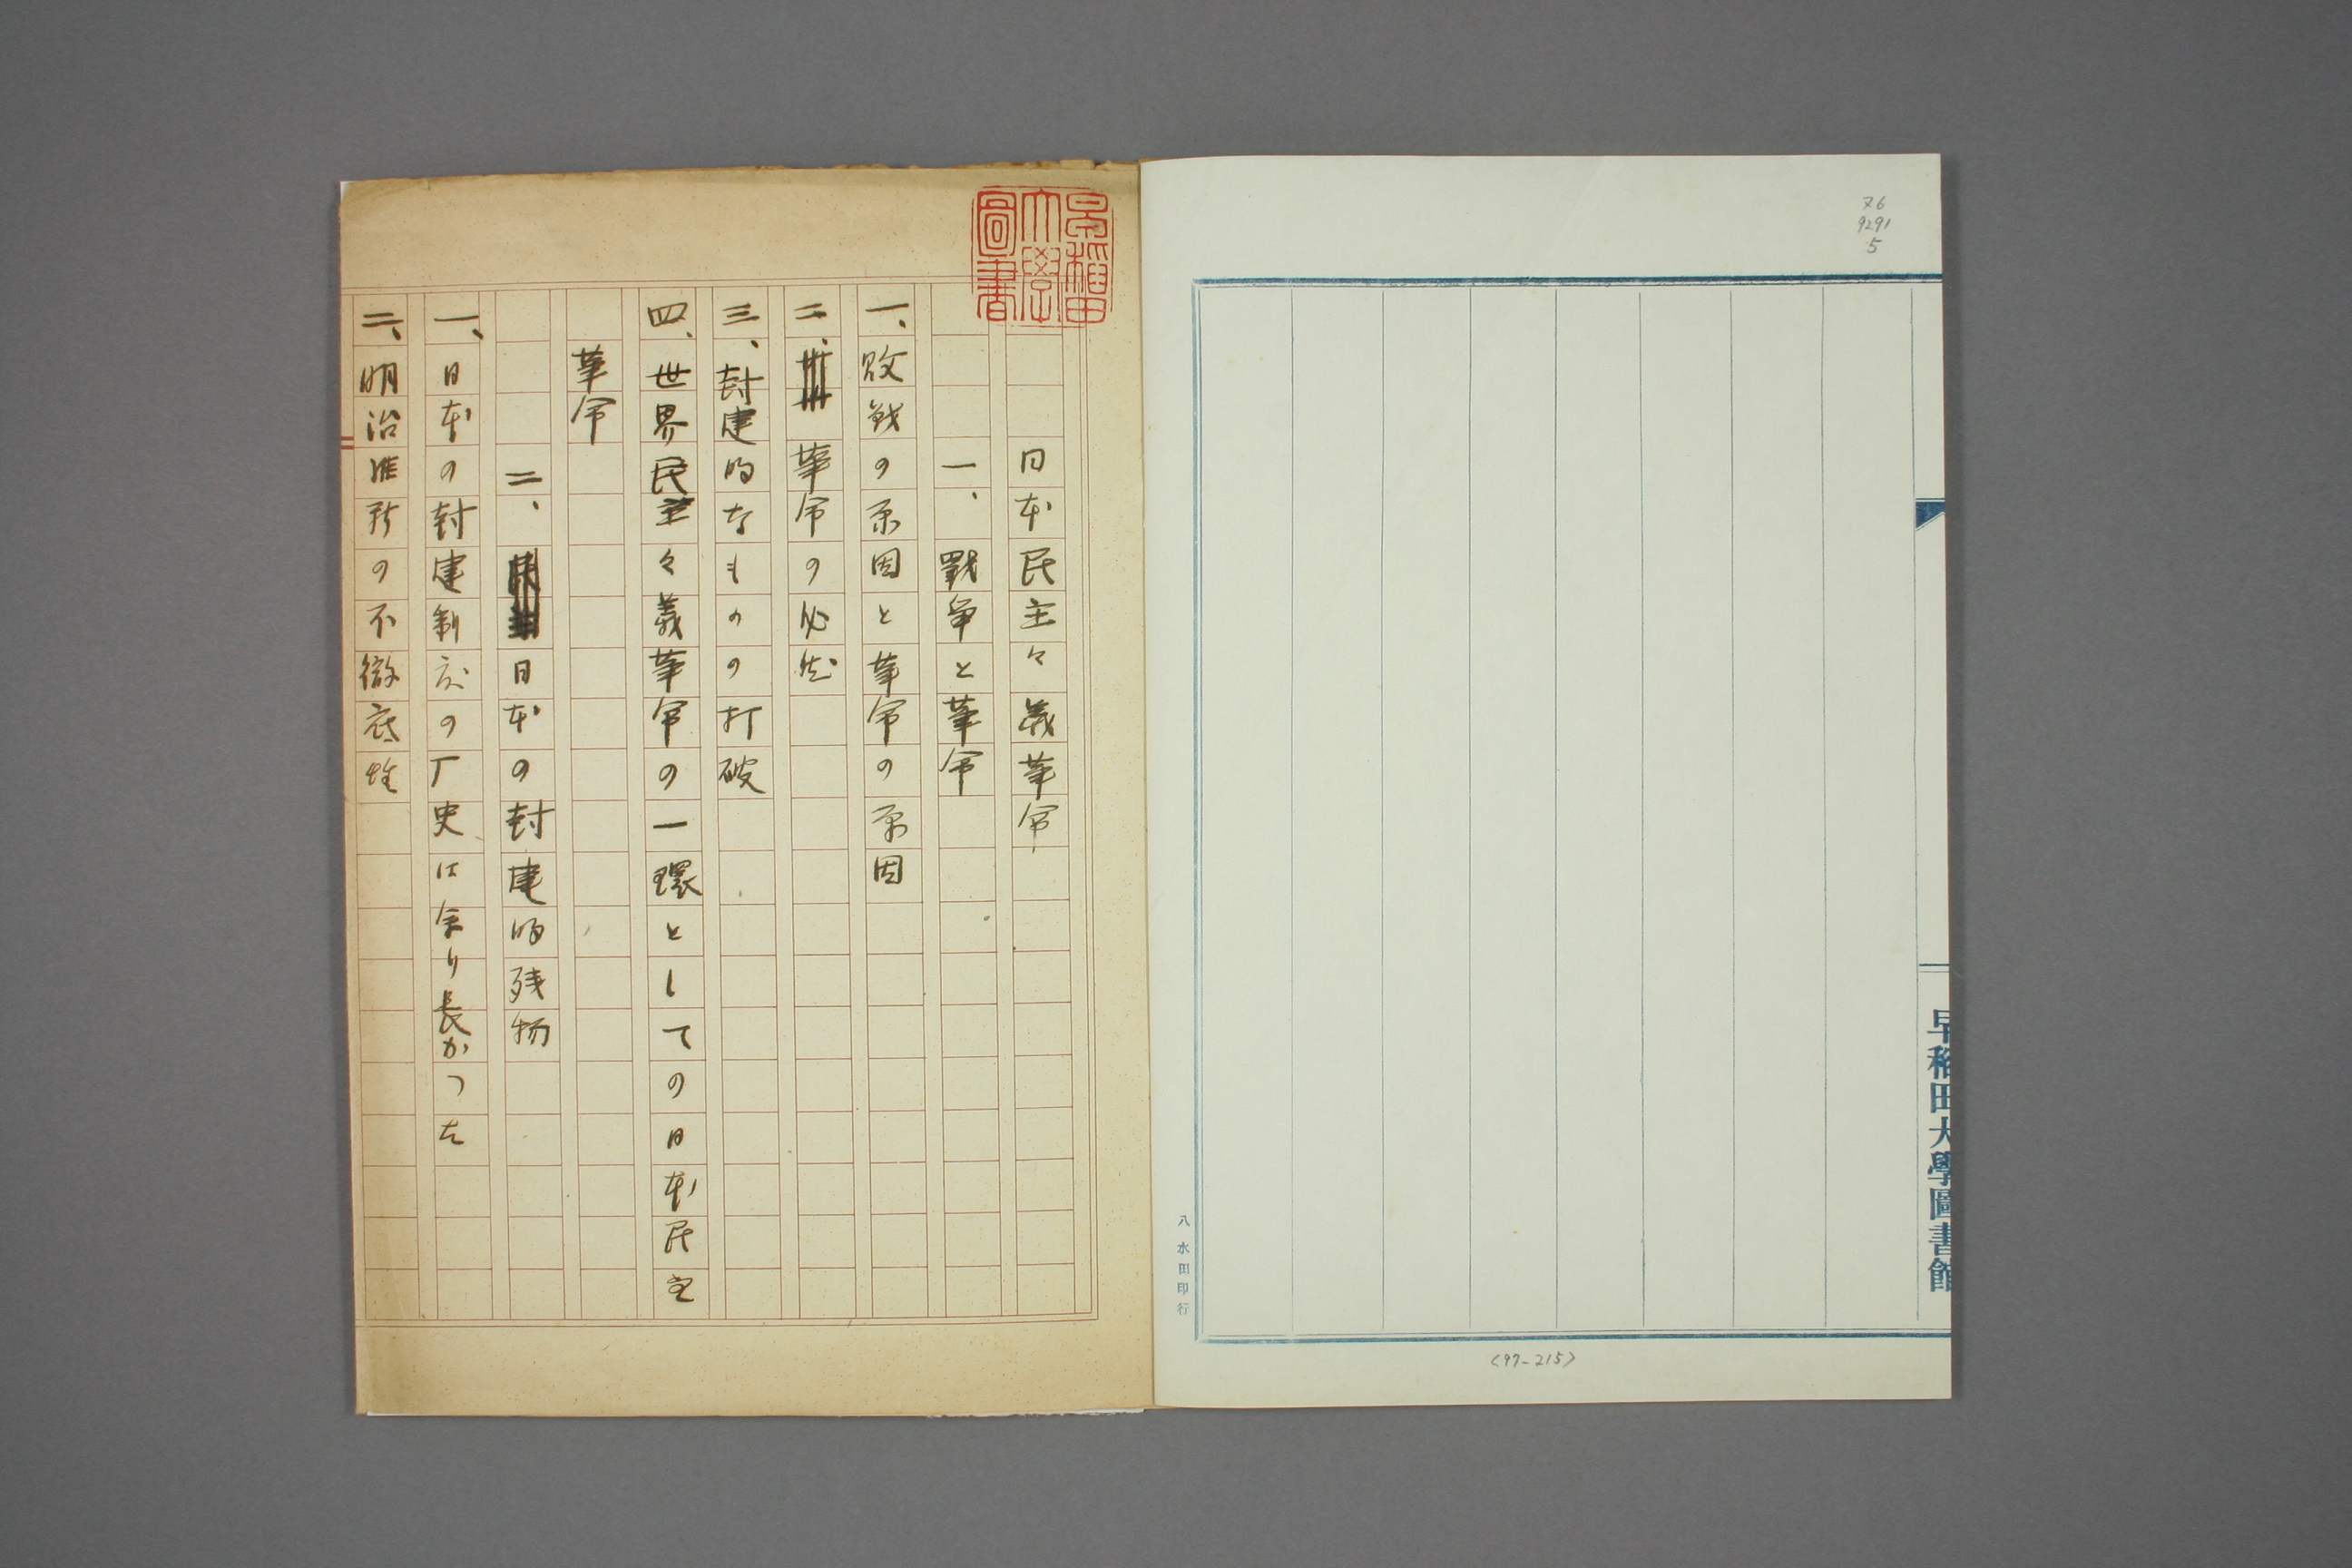 ヌ6
9291
5
早稲田大學圖書館
<97-215>
八水田印行
早稲田大學圖書
日本民主々義革命
一、戰争と革命
一、敗战の原因と革命の原因
二、革命の必然
三、封建的なものの打破
四、世界民主々義革命の一環としての日本民主
革命
二、日本の封建的残物
一、日本の封建制度の厂史は余り長かつた
二、明治維新の不徹底性